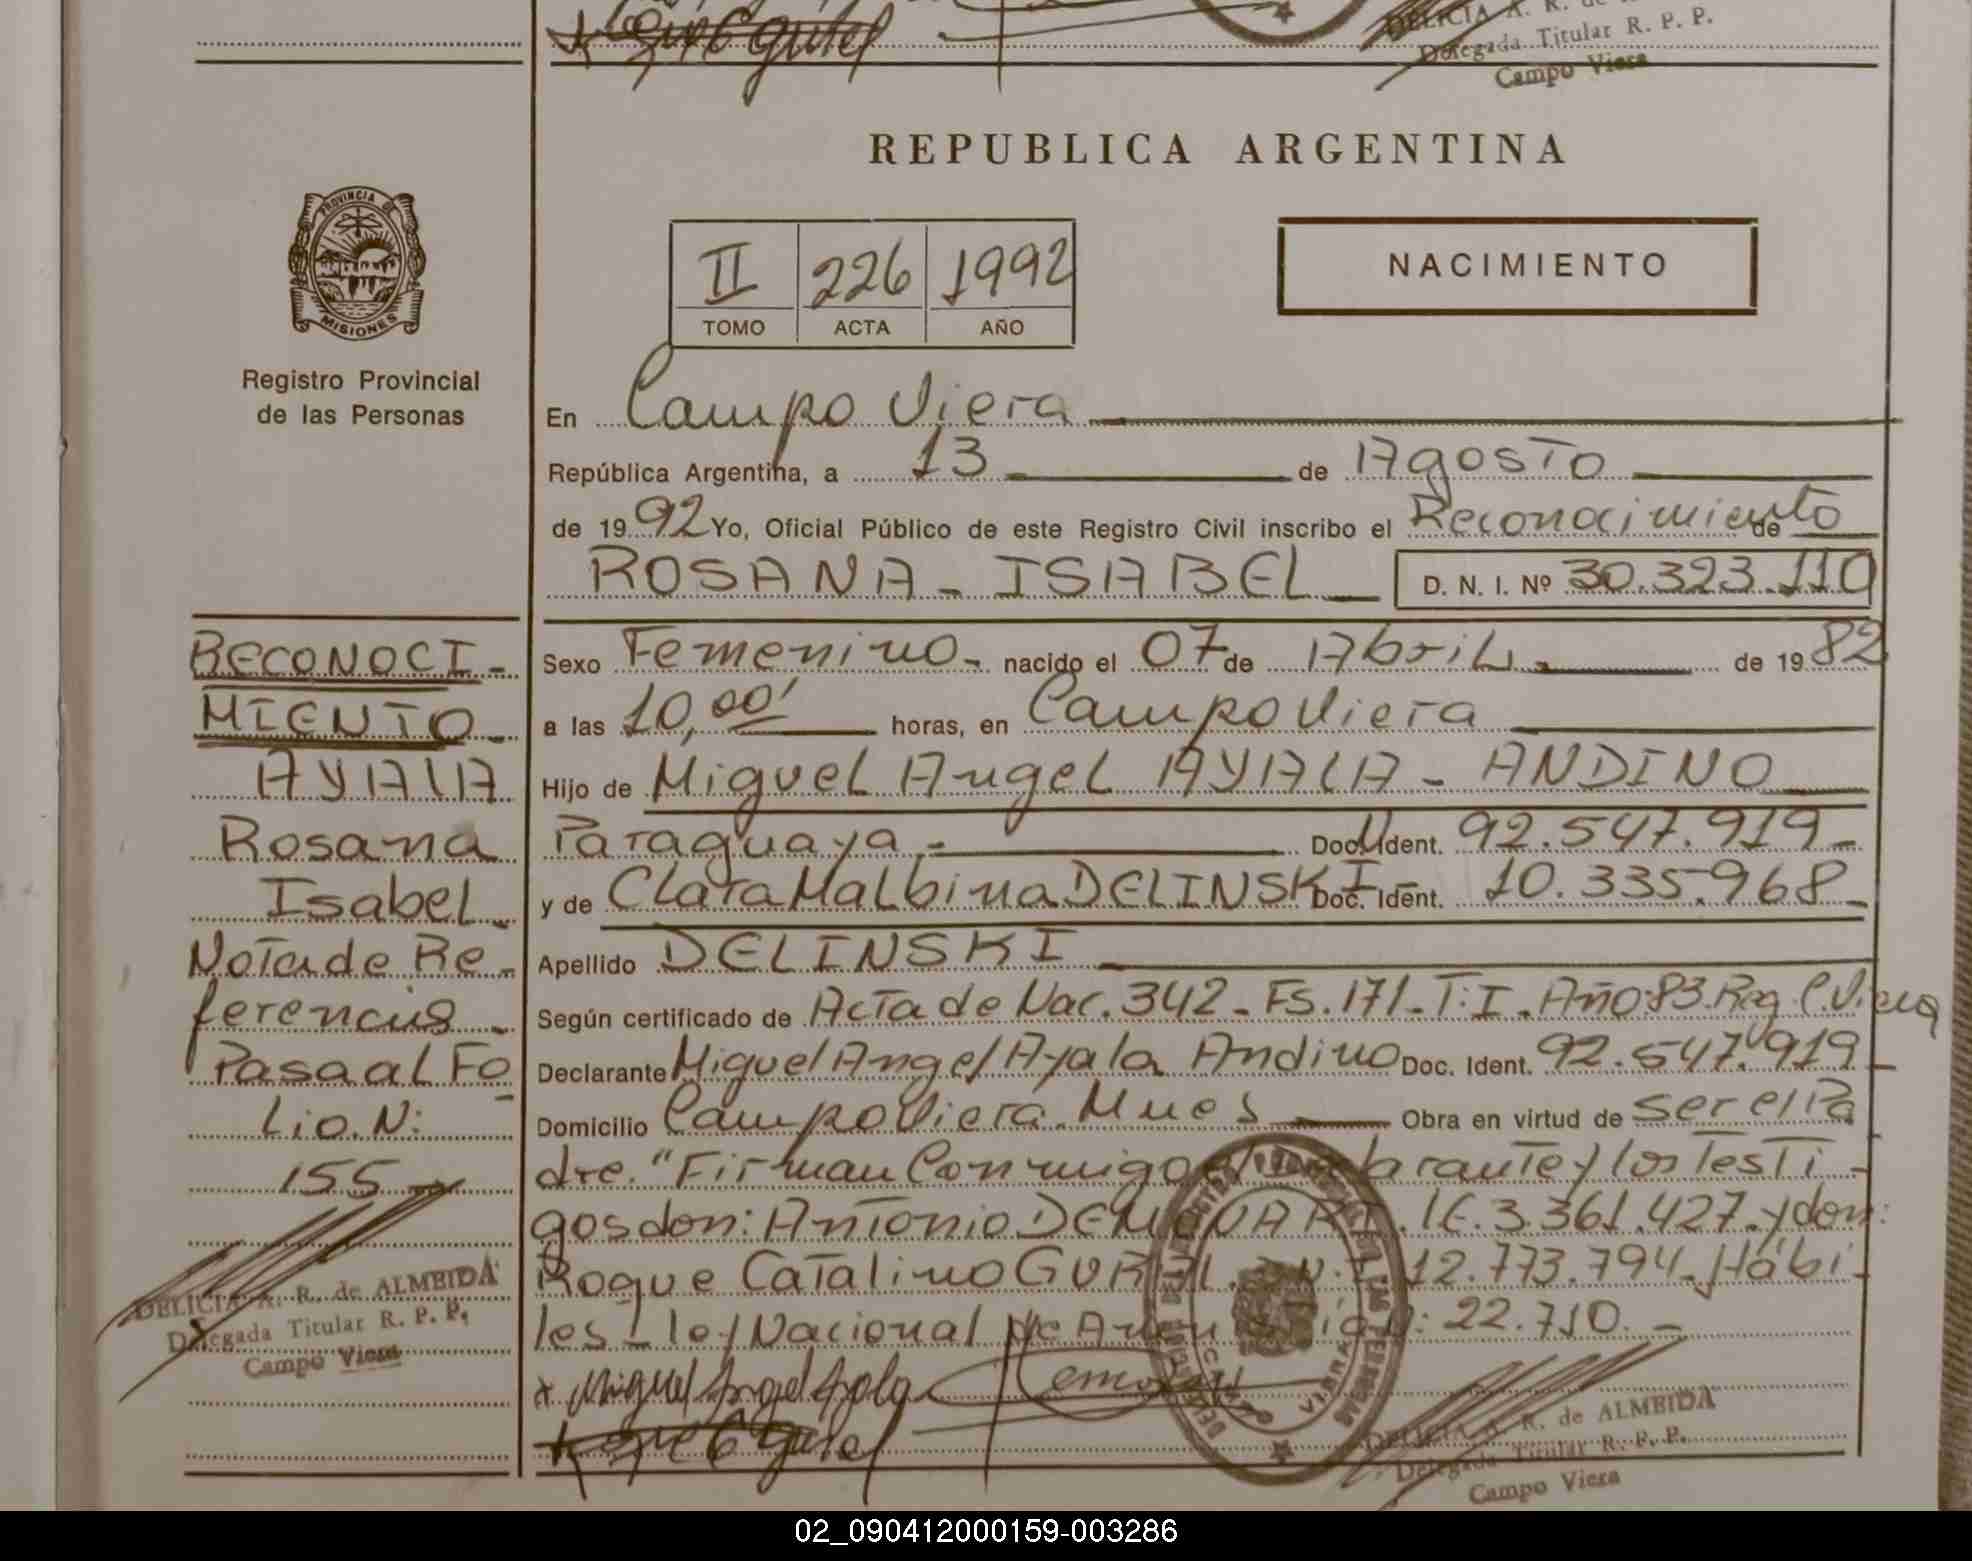 DELICIA A. R. de
Delegada Titular R. P. P.
Campo Viera
REPUBLICA ARGENTINA
PROVINCIA DE
MISIONES
Registro Provincial
de las Personas
II 226 1992
TOMO ACTA AÑO
NACIMIENTO
En Campo Viera
República Argentina, a 13 de Agosto
de 1992 Yo, Oficial Público de este Registro Civil inscribo el Reconocimiento de
ROSANA - ISABEL D. N. I. Nº 30.323.110
RECONOCI-
MIENTO-
AYALA
Rosana
Isabel-
Nota de Re-
ferencias-
Pasa al Fo
Lio. N:
155
DELICIA A. R. de ALMEIDA
Delegada Titular R. P. P.
Campo Viera
Sexo Femenino- nacido el 07 de Abril.- de 1982
a las 10,00' horas, en Campo Viera
Hijo de Miguel Angel AYALA - ANDINO
Paraguaya.- Doc. Ident. 92.547.919-
y de Clara Malbina DELINSKI- Doc. Ident. 10.335.968-
Apellido DELINSKI
Según certificado de Acta de Nac. 342- Fs. 171- T: I. Año: 83. Reg. C. Viera
Declarante Miguel Angel Ayala Andino Doc. Ident. 92.547.919-
Domicilio Campo Viera. Mnes Obra en virtud de ser el Pa
dre. "Firman Conmigo el declarante y los Testi-
gos don: Antonio DEMONARI. IE. 3.361.427. y don:
Roque Catalino GURAL. D.N.I. 12.773.794. Hábi-
les - ley Nacional Nº 22.710.-
Miguel Angel Ayala
DELICIA A. R. de ALMEIDA
Delegada Titular R. P. P.
Campo Viera
02_090412000159-003286